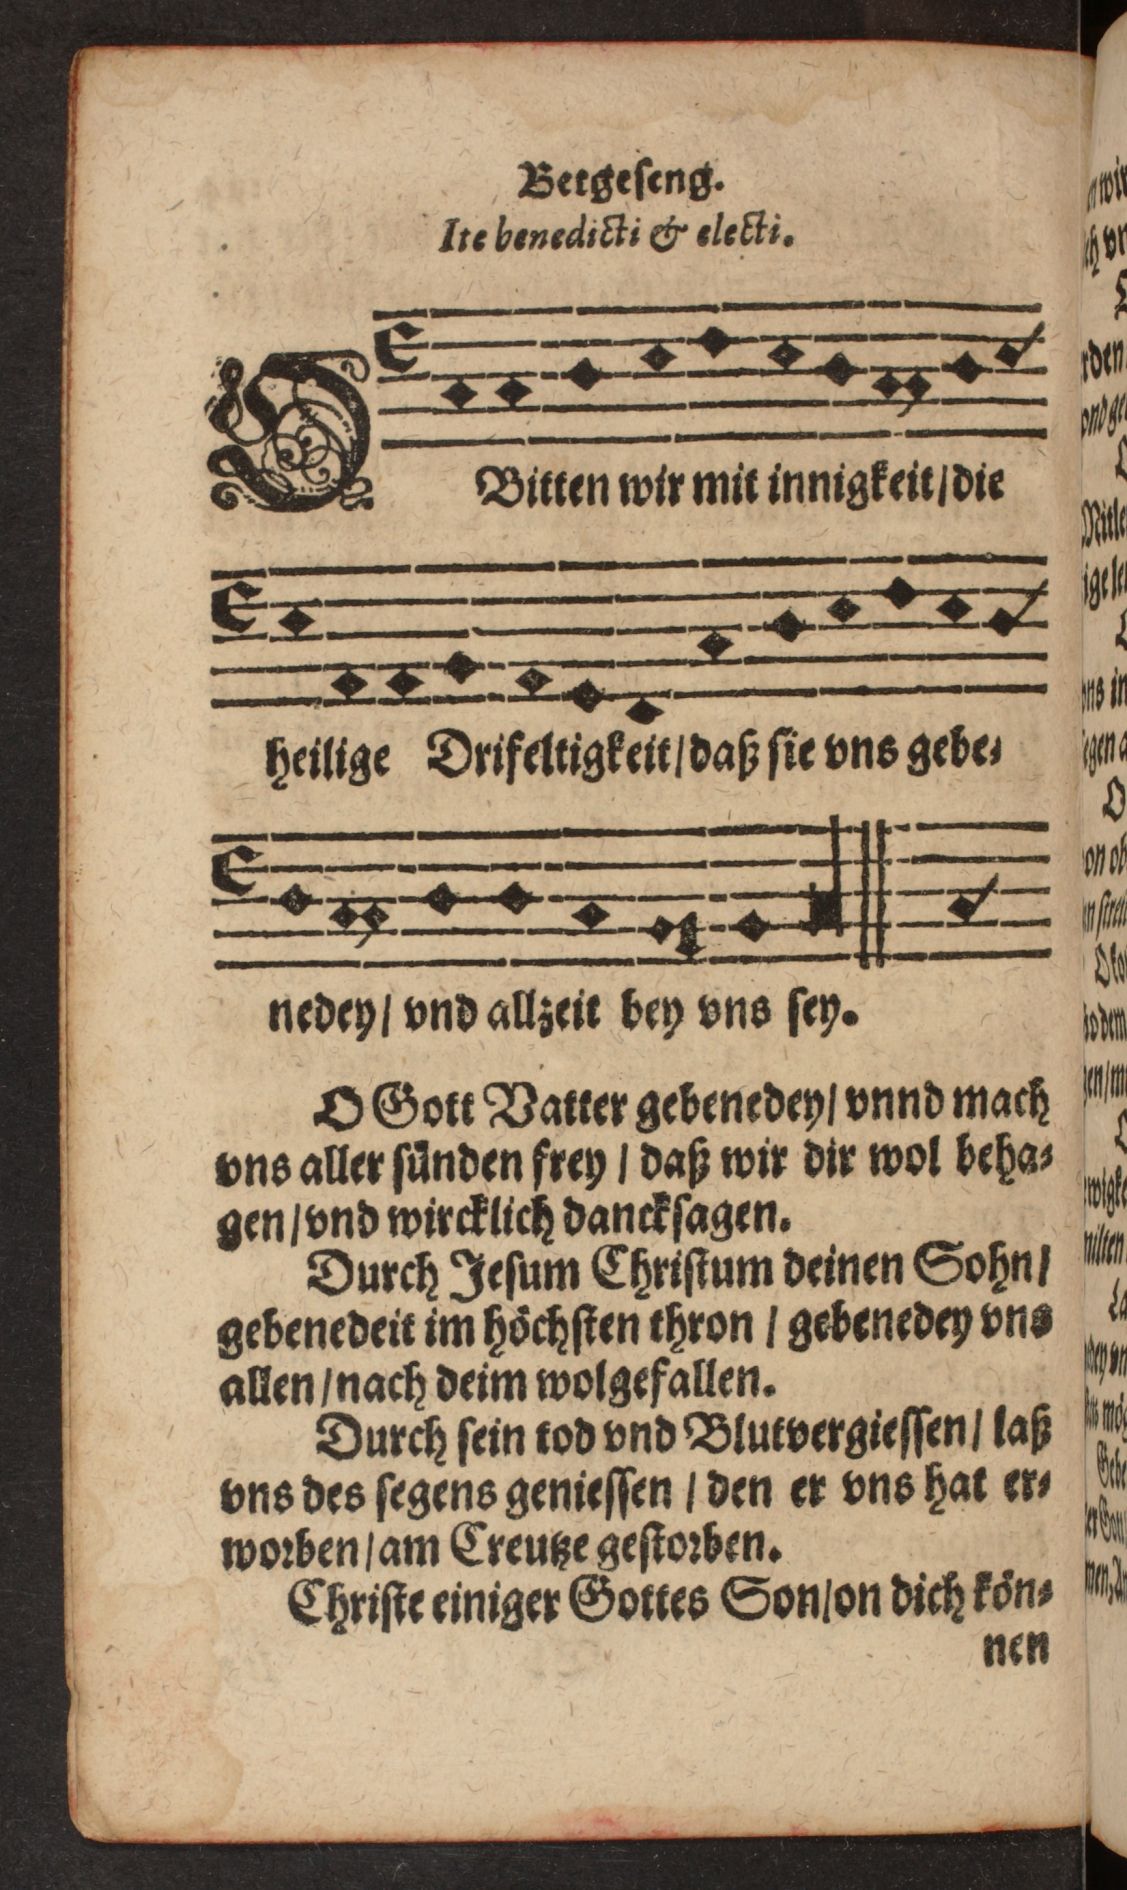 Betgeseng.
Ite benedicti & electi.
O Bitten wir mit innigkeit/die
heilige Drifeltigkeit/daß sie vns gebe-
nedey/ vnd allzeit bey vns sey.
O Gott Vatter gebenedey/ vnnd mach
vns aller sünden frey / daß wir dir wol beha-
gen/vnd wircklich dancksagen.
Durch Jesum Christum deinen Sohn/
gebenedeit im höchsten thron / gebenedey vns
allen/nach deim wolgefallen.
Durch sein tod vnd Blutvergiessen/ laß
vns des segens geniessen / den er vns hat er-
worben/am Creutze gestorben.
Christe einiger Gottes Son/on dich kön-
nen